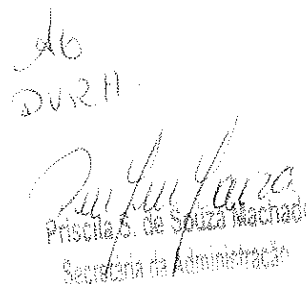 Ao
DVRH.
Priscila S. de Souza Machado
Secretária da Administração